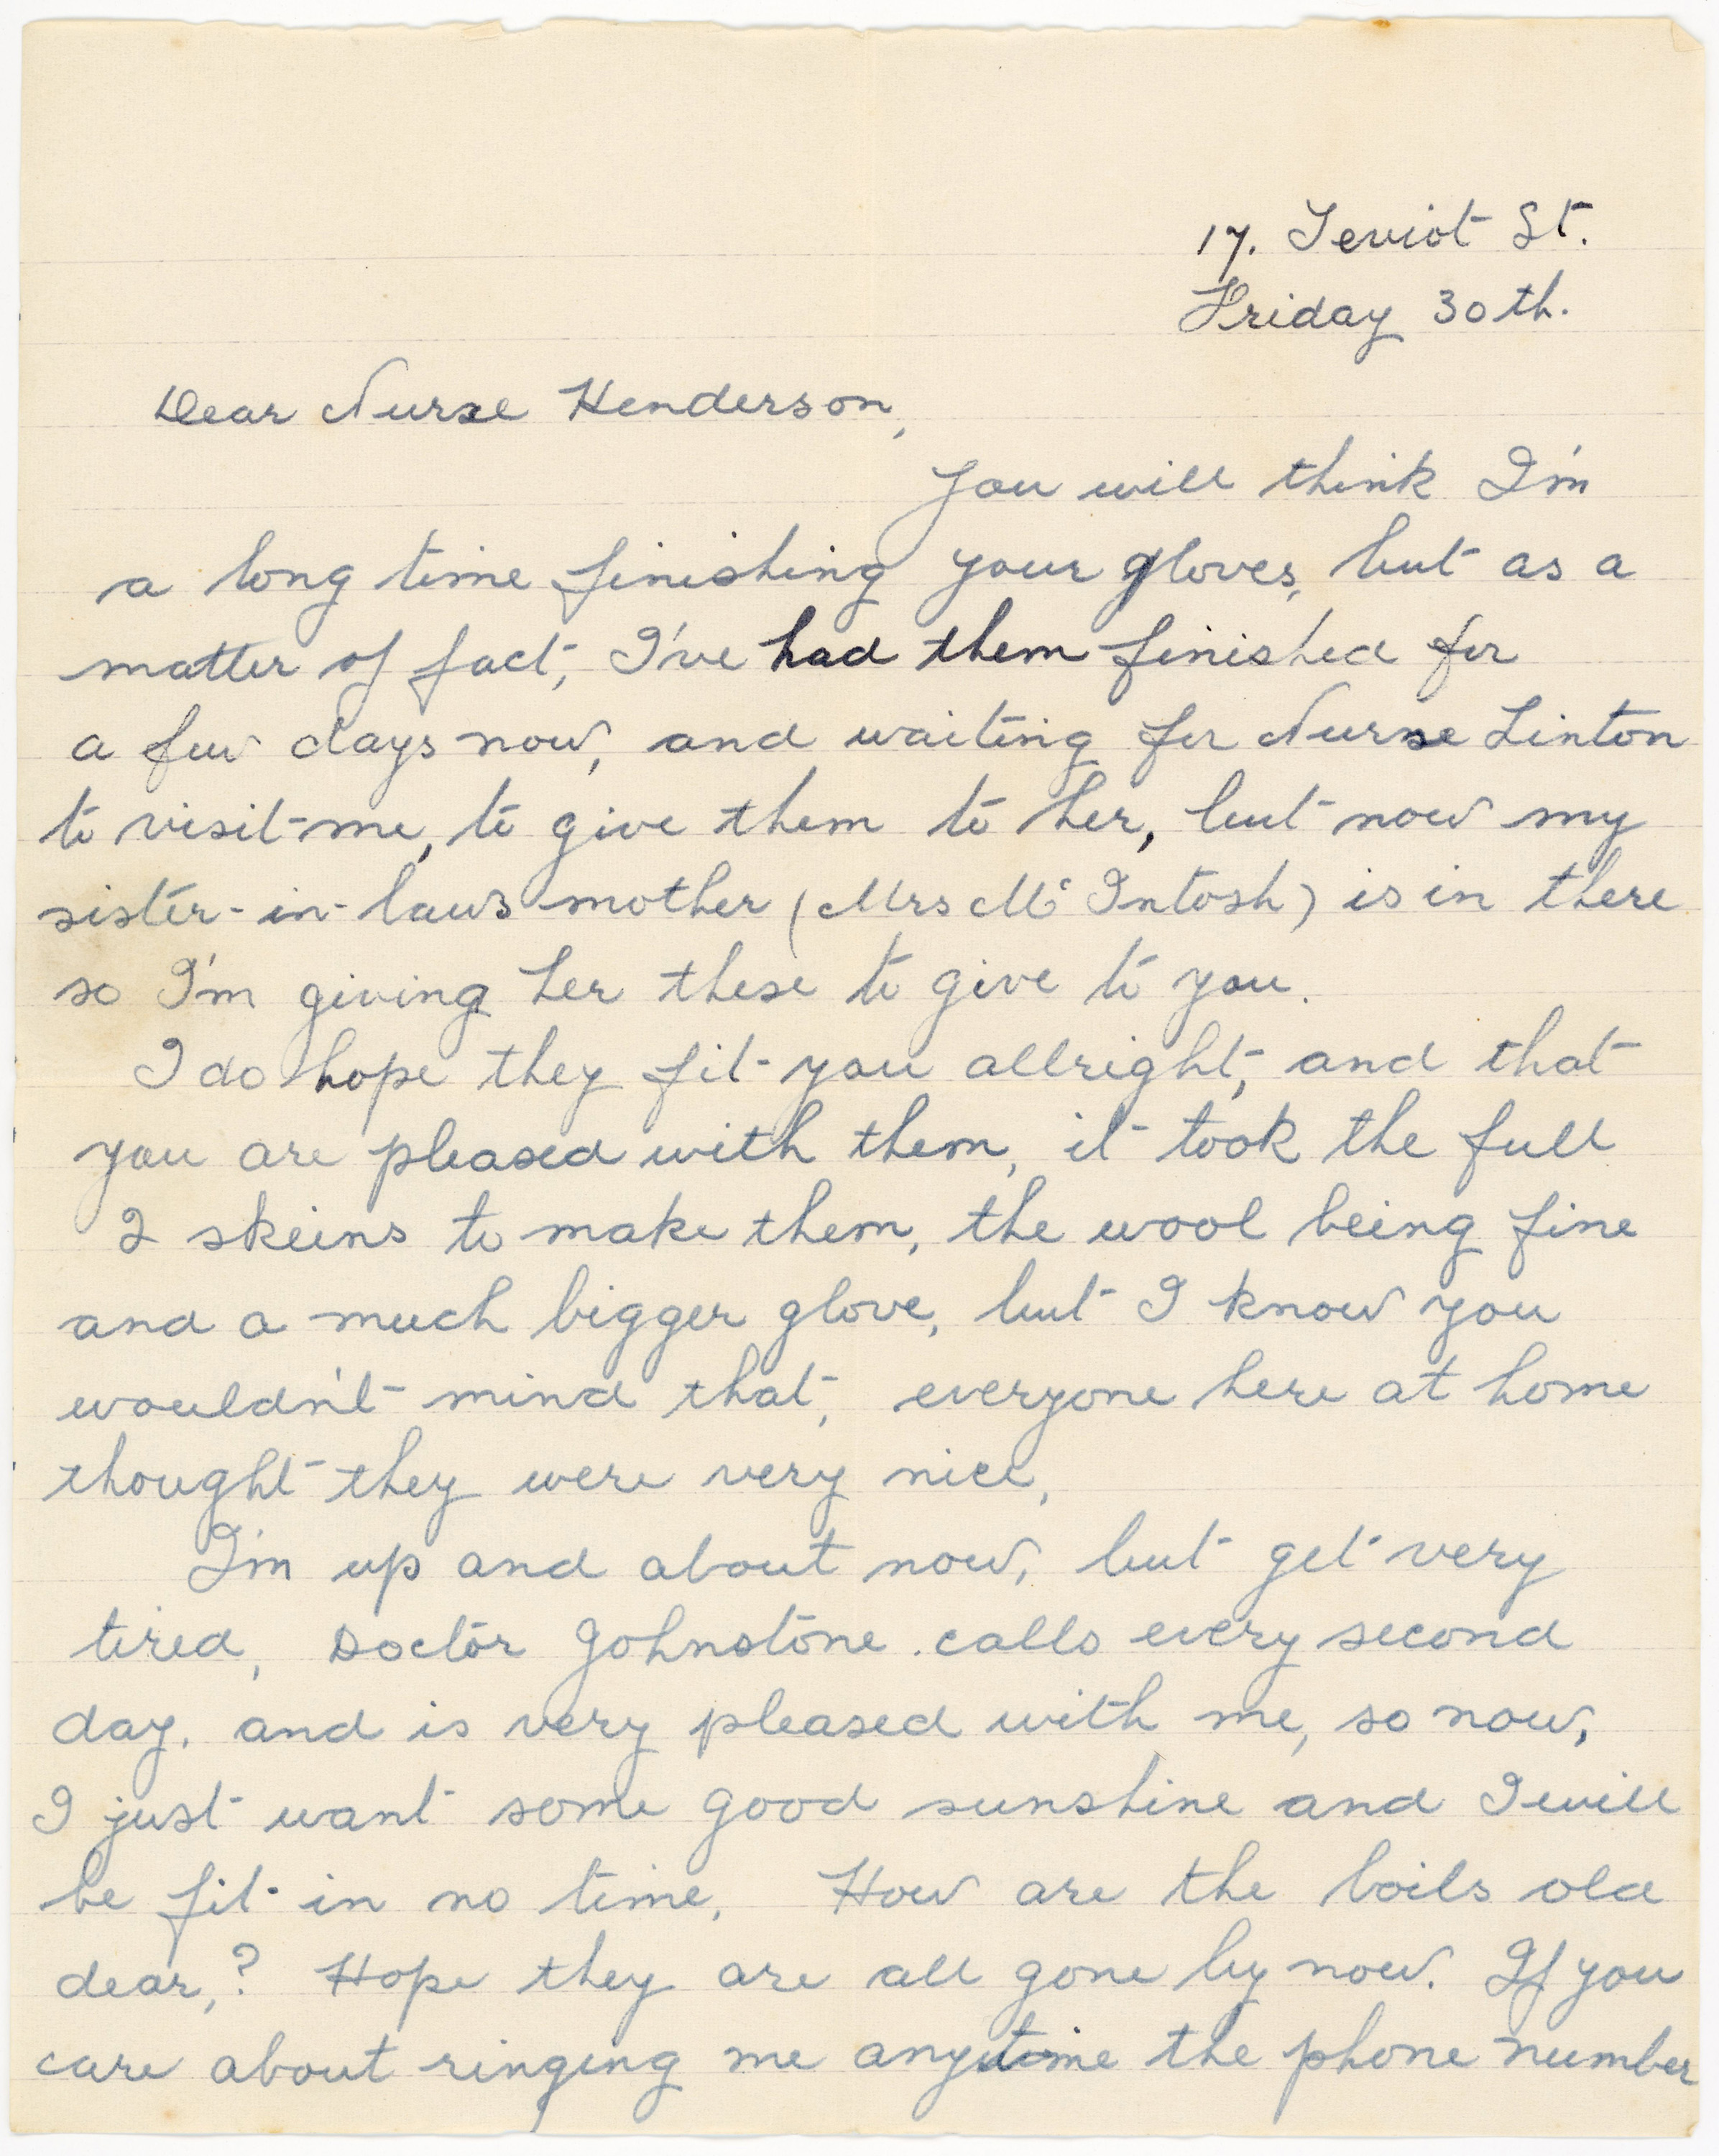 17. Teviot St.
Friday 30th.
Dear Nurse Henderson,
You will think I'm
a long time finishing your gloves, but as a
matter of fact, I've had them finished for
a few days now, and waiting for Nurse Linton
to visit me, to give them to her, but now my
sister-in-laws mother (Mrs Mc Intosh) is in there
so I'm giving her these to give to you.
I do hope they fit you allright, and that
you are pleased with them, it took the full
2 skeins to make them, the wool being fine
and a much bigger glove, but I know you
wouldn't mind that, everyone here at home
thought they were very nice,
I'm up and about now, but get very
tired, Doctor Johnstone. calls every second
day. and is very pleased with me, so now,
I just want some good sunshine and I will
be fit in no time, How are the boils old
dear,? Hope they are all gone by now. If you
care about ringing me anytime the phone number